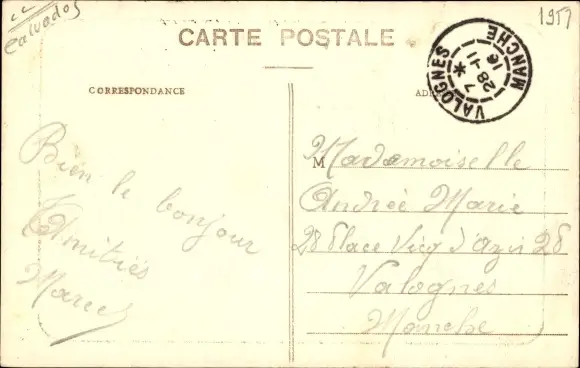 Calvados
1951
CARTE POSTALE
VALOGNES
MANCHE
7 *
28-11
16
CORRESPONDANCE
Bien le bonjour
Amitiés
Marcel
M Mademoiselle
Andrée Marie
28 Place Vicq d'Azir 28
Valognes
Manche